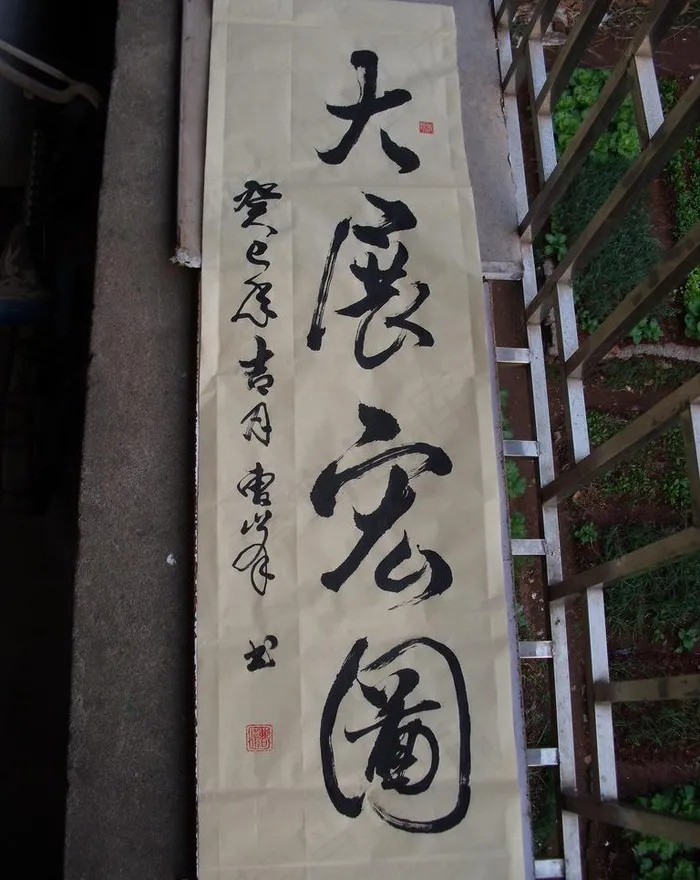 大展宏圖
癸巳年吉月曹峯书